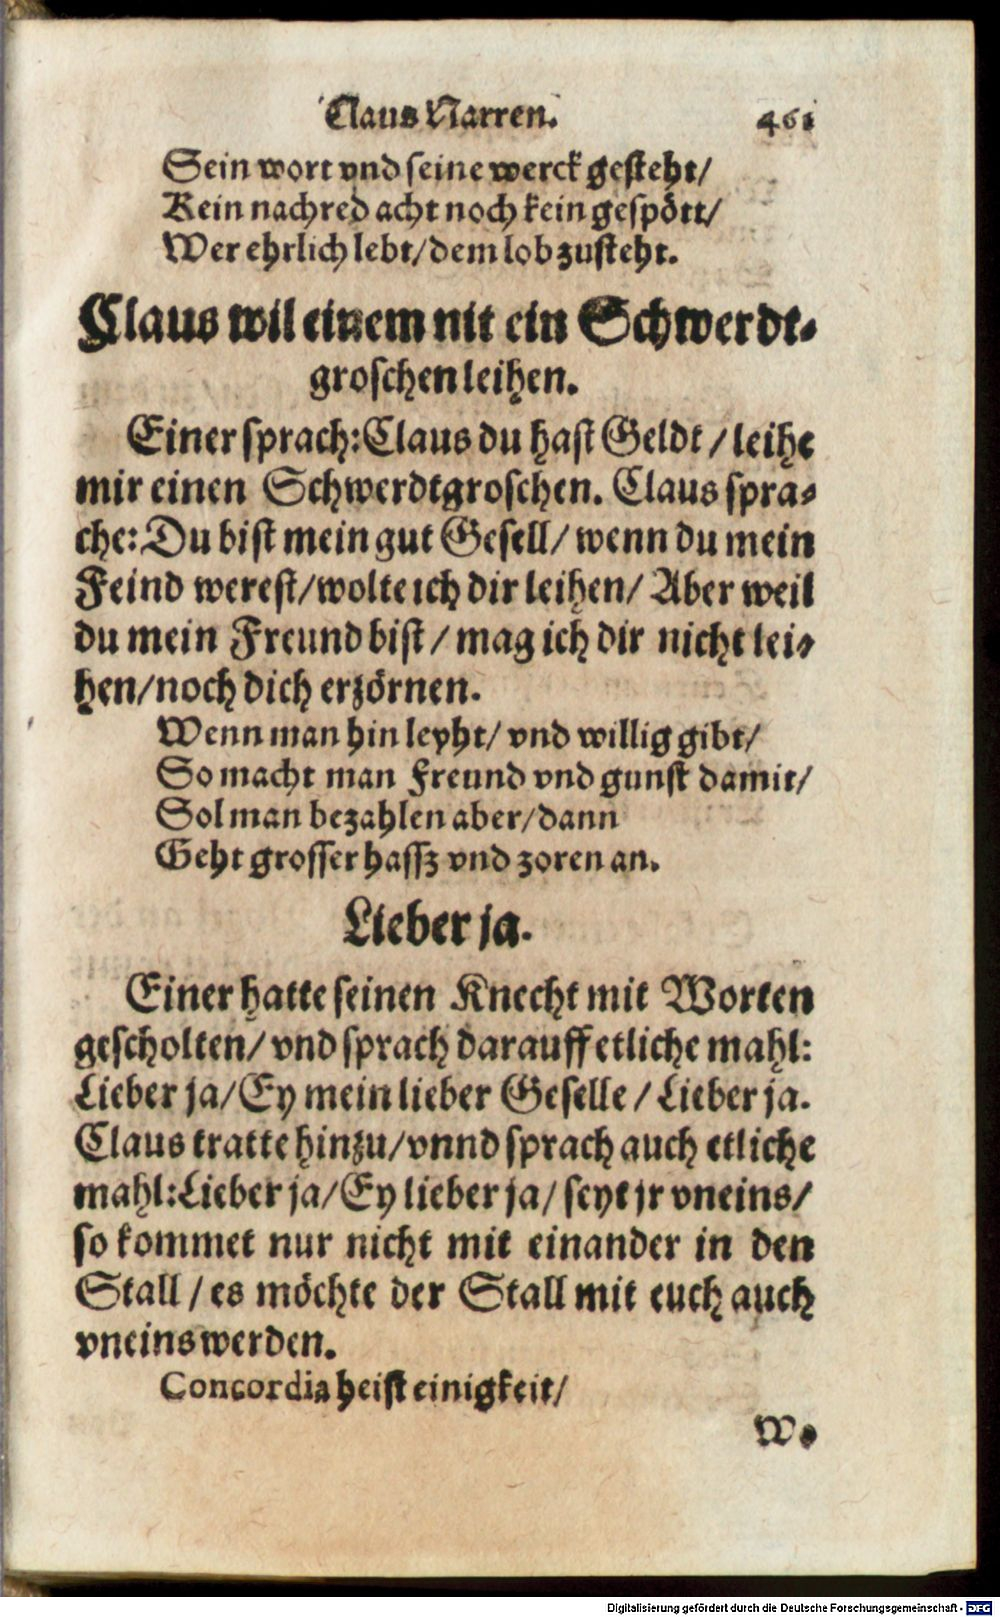 Claus Narren. 461
Sein wort vnd seine werck gesteht/
Kein nachred acht noch kein gespött/
Wer ehrlich lebt/dem lob zusteht.
Claus wil einem nit ein Schwerdt-
groschen leihen.
Einer sprach:Claus du hast Geldt/leihe
mir einen Schwerdtgroschen. Claus spra-
che: Du bist mein gut Gesell/ wenn du mein
Feind werest/wolte ich dir leihen/ Aber weil
du mein Freund bist/ mag ich dir nicht lei-
hen/noch dich erzörnen.
Wenn man hin leyht/ vnd willig gibt/
So macht man Freund vnd gunst damit/
Sol man bezahlen aber/dann
Geht grosser hassz vnd zoren an.
Lieber ja.
Einer hatte seinen Knecht mit Worten
gescholten/ vnd sprach darauff etliche mahl:
Lieber ja/Ey mein lieber Geselle/ Lieber ja.
Claus tratte hinzu/vnnd sprach auch etliche
mahl:Lieber ja/Ey lieber ja/ seyt jr vneins/
so kommet nur nicht mit einander in den
Stall/ es möchte der Stall mit euch auch
vneins werden.
Concordia heist einigkeit/
Wo
Digitalisierung gefördert durch die Deutsche Forschungsgemeinschaft - DFG